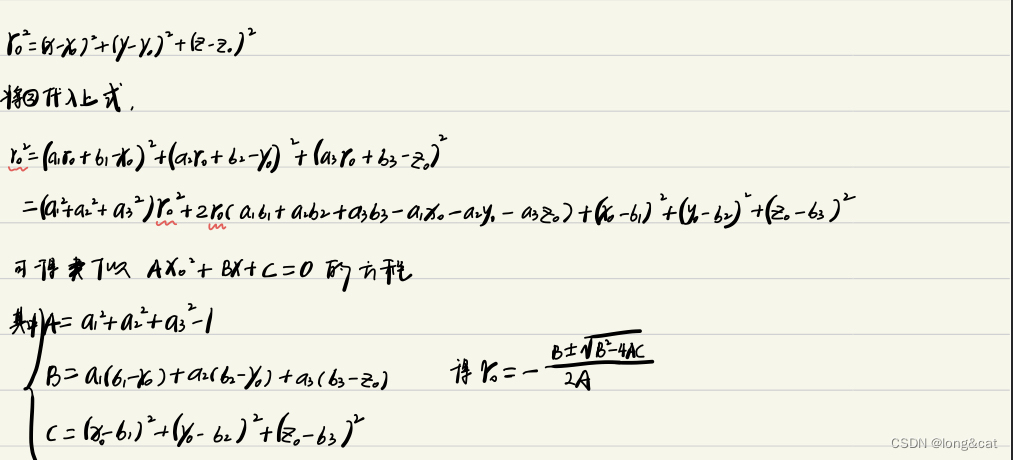 r₀²=(x-x₀)²+(y-y₀)²+(z-z₀)²
将②代入上式,
r₀²=(a₁r₀+b₁-x₀)²+(a₂r₀+b₂-y₀)²+(a₃r₀+b₃-z₀)²
=(a₁²+a₂²+a₃²)r₀²+2r₀(a₁b₁+a₂b₂+a₃b₃-a₁x₀-a₂y₀-a₃z₀)+(x₀-b₁)²+(y₀-b₂)²+(z₀-b₃)²
可得 AX₀²+BX+C=0 的方程
其中 A=a₁²+a₂²+a₃²-1
B=a₁(b₁-x₀)+a₂(b₂-y₀)+a₃(b₃-z₀) 得 r₀=-(B±√(B²-4AC))/(2A)
C=(x₀-b₁)²+(y₀-b₂)²+(z₀-b₃)²
CSDN @long&cat